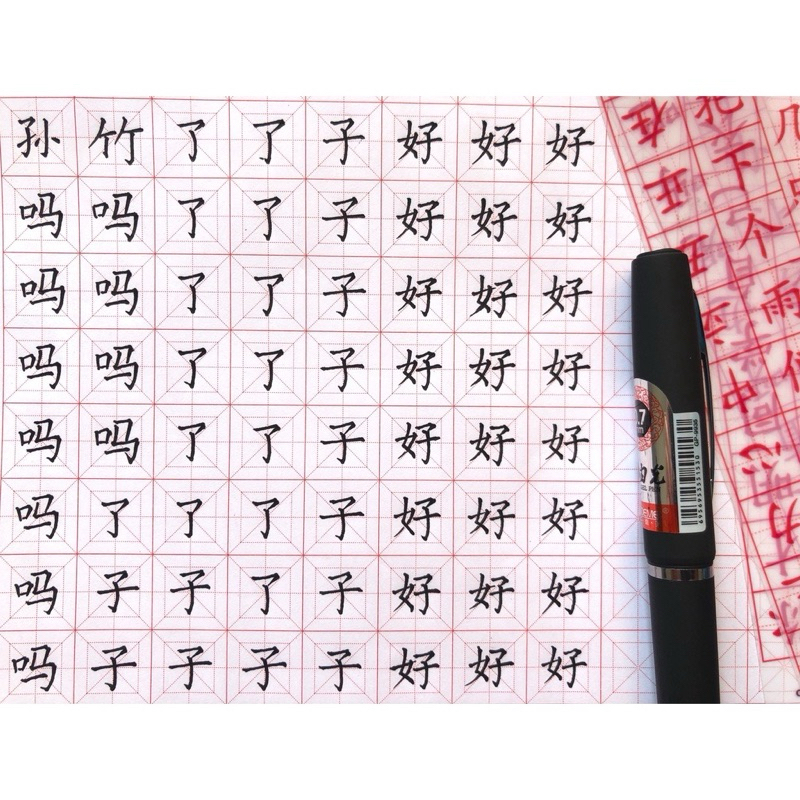 孙 竹 了 了 子 好 好 好
吗 吗 了 了 子 好 好 好
吗 吗 了 了 子 好 好 好
吗 吗 了 了 子 好 好 好
吗 吗 了 了 子 好 好 好
吗 了 了 了 子 好 好 好
吗 子 子 了 子 好 好 好
吗 子 子 子 子 好 好 好
在
正
下
个
雨
中
心
力